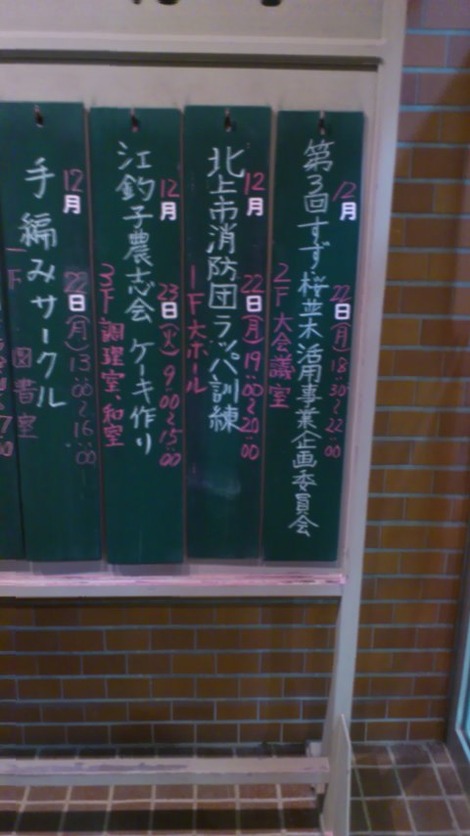 12月22日(月)18:30~22:00
第3回すず桜並木活用事業企画委員会
2F大会議室
12月22日(月)19:00~20:00
北上市消防団ラッパ訓練
1F大ホール
12月23日(火)9:00~15:00
江釣子農志会 ケーキ作り
3F調理室、和室
12月22日(月)13:00~16:00
手編みサークル
1F 図書室